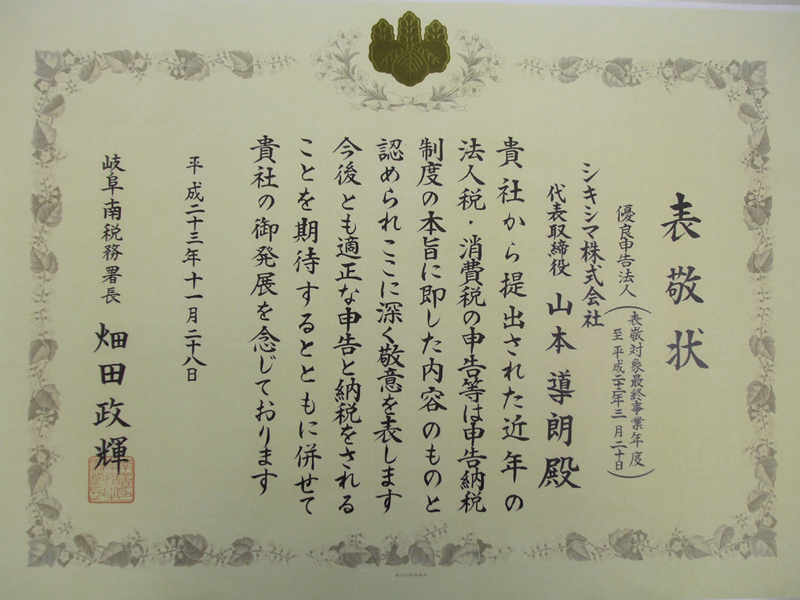 表敬状
優良申告法人
(表敬対象最終事業年度
至 平成二十三年三月二十日)
シキシマ株式会社
代表取締役 山本 導朗殿
貴社から提出された近年の
法人税・消費税の申告等は申告納税
制度の本旨に即した内容のものと
認められここに深く敬意を表します
今後とも適正な申告と納税をされる
ことを期待するとともに併せて
貴社の御発展を念じております
平成二十三年十一月二十八日
岐阜南税務署長 畑田政輝